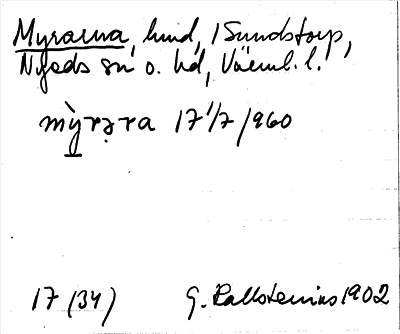 Myrarna, hund, i Sundstorp,
Nyeds sn o. hd, Värml. l.
mỳ̱rəra 17 1/7 1960
17 (34) G. Kallstenius 1902